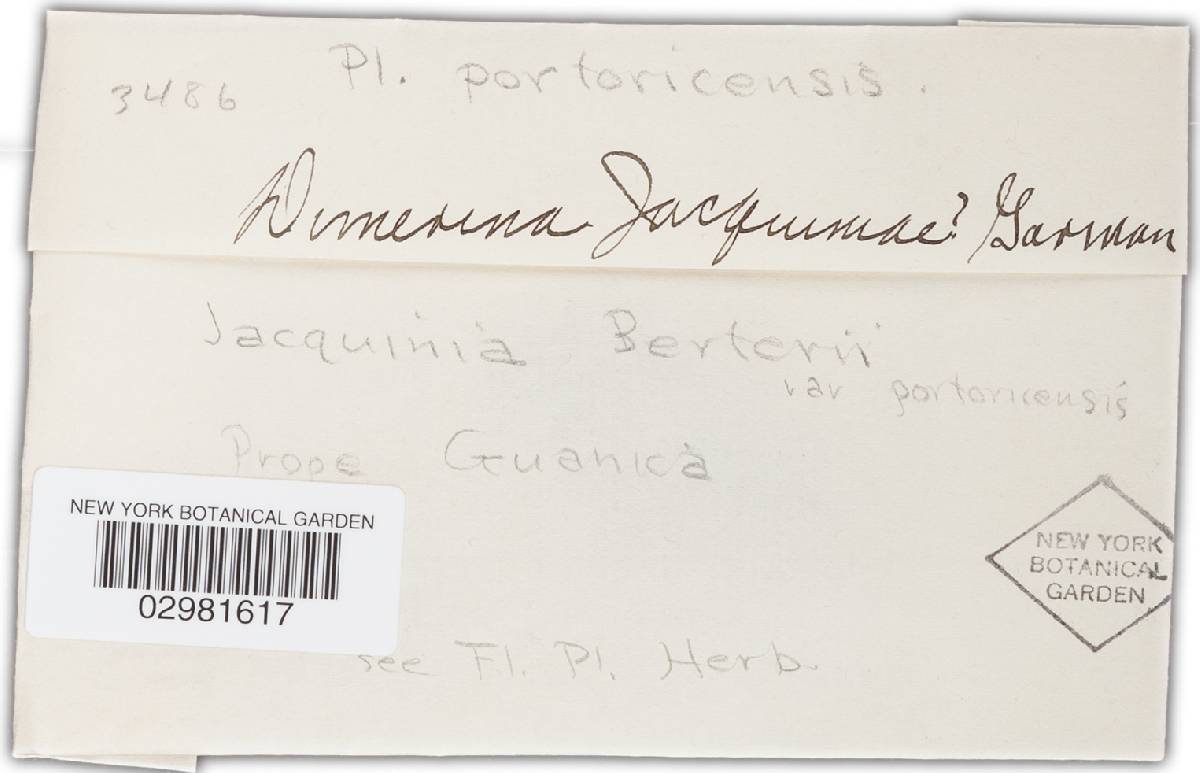 Pl. portoricensis.
3486
Dimerina Jacquiniae? Garman
Jacquinia Berterii
var portoricensis
Prope Guanica
NEW YORK BOTANICAL GARDEN
02981617
NEW YORK
BOTANICAL
GARDEN
see Fl. Pl. Herb.